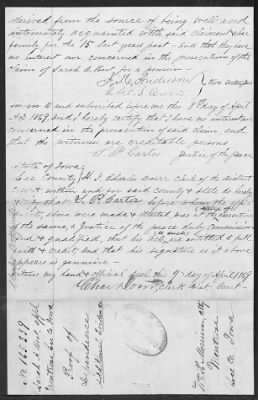 derived from the source of being well and
intimately acquainted with said claimant & her
family for the 15 last years past - and that they have
no interest nor concerned in the prosecution of the
claim of Sarah A. for a pension
J. M. Anderson
two witnesses
Sworn to and subscribed before me this 8 day of April
A.D. 1869, and I hereby certify that I have no interest nor
concerned in the prosecution of said claim and
that the witnesses are creditable persons
S. P. Carter Justice of the Peace
State of Iowa
Lee County I, Charles Doerr clerk of the district
court within and for said county & state do hereby
certify that S. P. Carter before whom the
above were made & attested was at the
the same, a Justice of the peace duly Commissioned
and qualified, that his acts are entitled to full
faith & credit, and that his signature is as above
appears is genuine -
Witness my hand & official seal this 9 day of April 1869
Char Doerr, Clerk Dist Court -
No 165,259
Sarah A. appl
Montrose Lee Co Iowa
Proof of
Dependence
Additional Evidence
Atty
Montrose
Lee Co Iowa